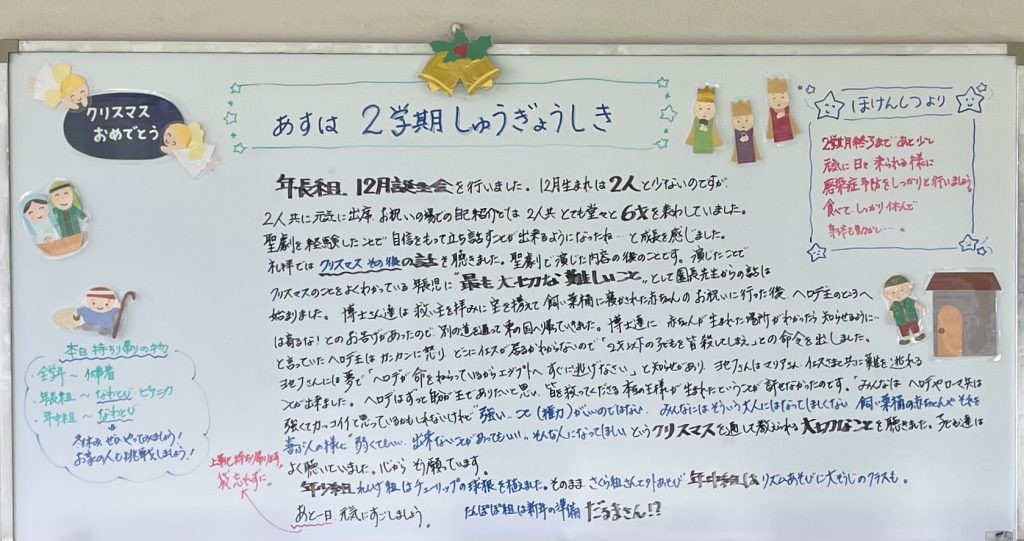 クリスマス
おめでとう
あすは 2学期しゅうぎょうしき
ほけんしつより
2学期終了まであと少し
元気に日々来られる様に
感染症予防をしっかりと行いましょう。
食べて、しっかり休んで
年長組、12月誕生会を行いました。12月生まれは2人と少ないのですが
2人共に元気に出席 お祝いの場での自己紹介では 2人共とても堂々と6才を表わしていました。
聖劇を経験したことで自信をもって立ち話すことが出来るようになったね…と成長を感じました。
礼拝ではクリスマスその後の話を聴きました。聖劇で演じた内容の後のことです。演じたことで
クリスマスのことをよくわかっている年長児に"最も大切な難しいこと"として園長先生からの話は
始まりました。博士さん達は救い主を拝みに宝を携えて飼い葉桶に寝かされた赤ちゃんのお祝いに行った後、ヘロデ王のところへ
は寄るな!とのお告げがあったので別の道を通って東の国へ帰っていきました。博士達に赤ちゃんが生まれた場所がわかったら知らせるように…
と言っていたヘロデ王はカンカンに怒り、どこにイエスが居るかわからないので「2才以下の子どもを皆殺してしまえ」との命令を出しました。
ヨセフさんには夢で「ヘロデが命をねらっているからエジプトへすぐに逃げなさい」と知らせがあり、ヨセフさんはマリアさん、イエスさまと共に難を逃れる
ことが出来ました。ヘロデはずっと自分が王でありたいと思い、皆を救ってくださる本当の王様が生まれたということが許せなかったのです。「みんなは ヘロデやローマ兵は
強くてカッコイイと思っているかもしれないけれど"強い"こと(権力)がいいのではない。みんなにはそういう大人にはなってほしくない 飼い葉桶の赤ちゃんやそれを
喜ぶ人の様に"弱くてもいい、出来ないことがあってもいい"。そんな人になってほしい というクリスマスを通して教えられる大切なことを聴きました。子ども達は
よく聴いていました。心からそう願っています。
年少組 れんげ組はチューリップの球根を植えました。そのまま さくら組さんと外あそび 年中組は リズムあそびに大ぞうじのクラスも。
たんぽぽ組は新年の準備 だるまさん!?
あと一日 元気にすごしましょう。
本日持ち帰りの物
年長組 ～ なわとび・ピアニカ
年中組 ～ なわとび
冬休み ぜひやってみましょう!
お家の人も挑戦しましょう!
上靴も持ち帰ります。
袋忘れずに。